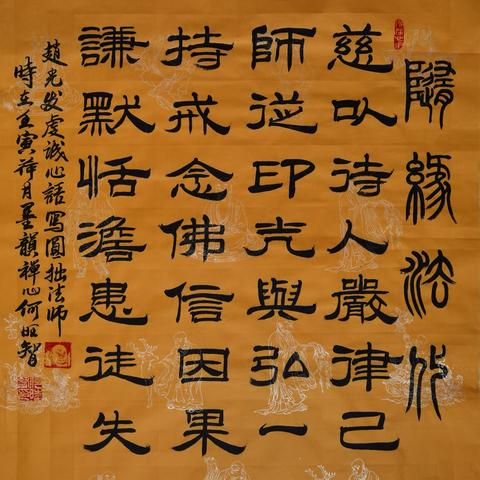 隨緣法
慈以待人嚴律己
師從印光與弘一
持戒念佛信因果
謙默恬澹患徒失
趙光發虔誠心語寫圓拙法師
時在壬寅荷月墨韻禪心何旺智